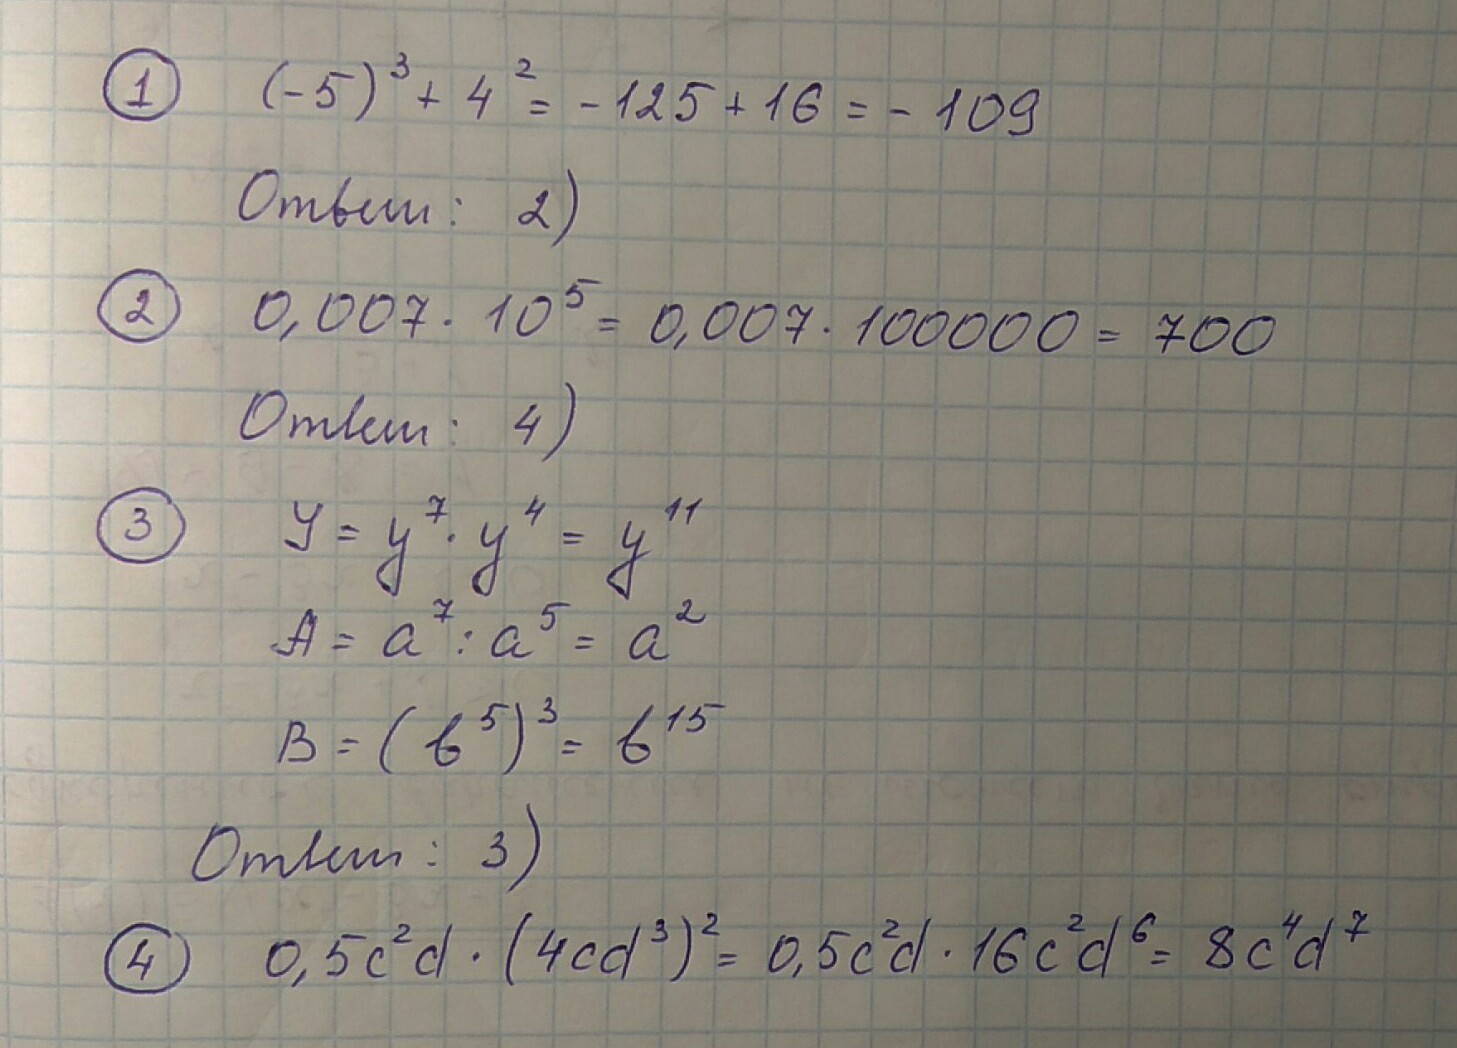 ① (-5)³ + 4² = -125 + 16 = - 109
Ответ: 2)
② 0,007 · 10⁵ = 0,007 · 100000 = 700
Ответ: 4)
③ У = y⁷ · y⁴ = y¹¹
А = a⁷ : a⁵ = a²
В = (b⁵)³ = b¹⁵
Ответ: 3)
④ 0,5c²d · (4cd³)² = 0,5c²d · 16c²d⁶ = 8c⁴d⁷